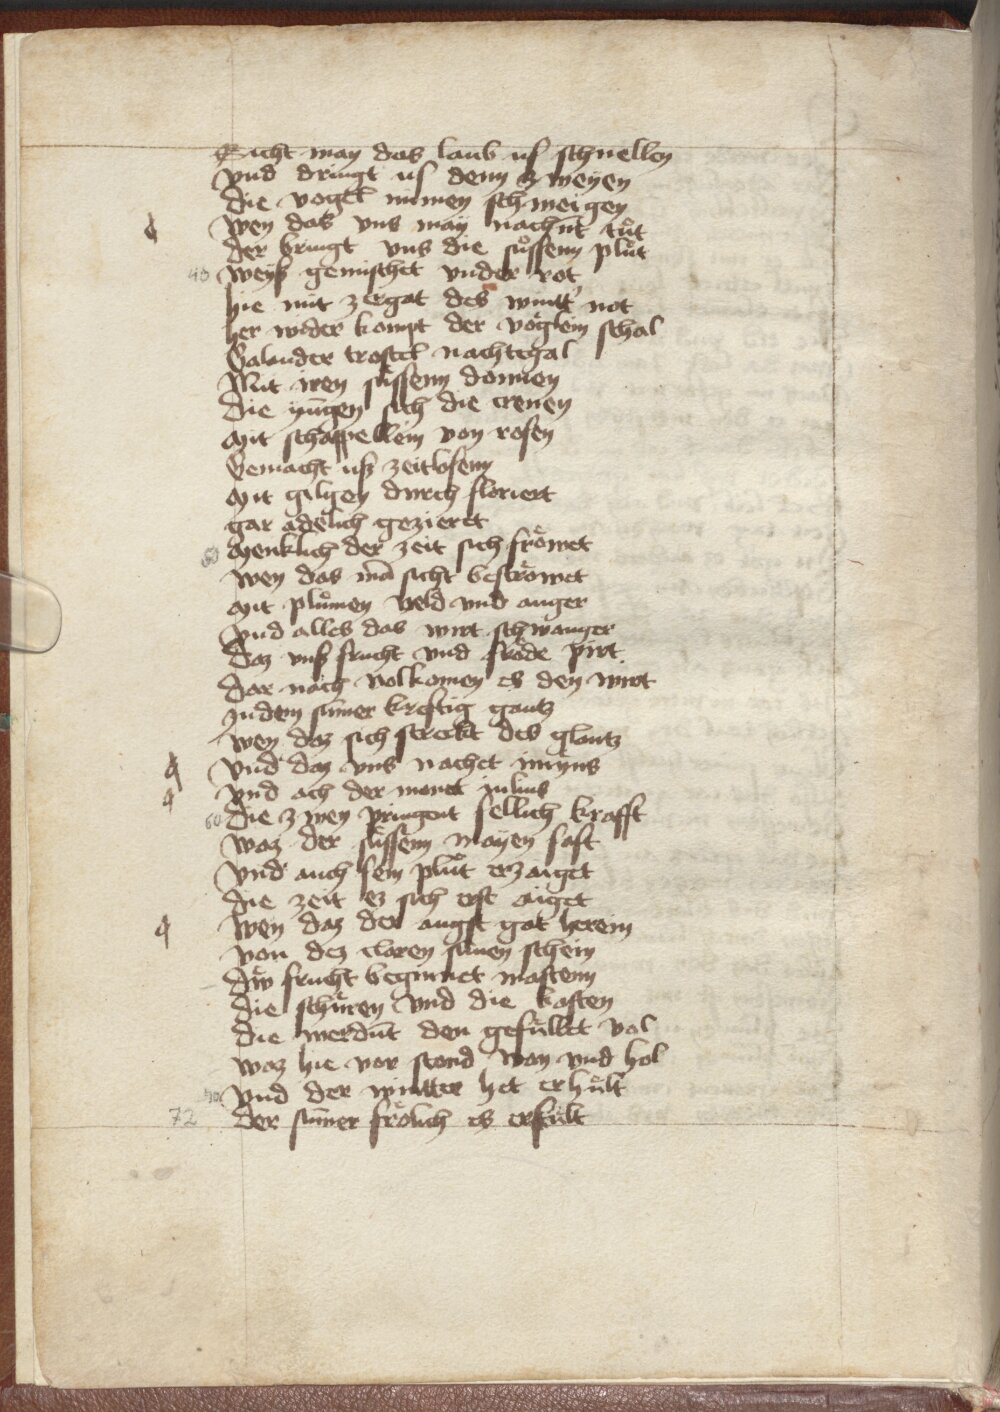 Sicht man das laub uß schnellen
Vnd dringt uß denn zweyen
Die vogel nimen schweigen
Wen das vns may nachnt tuͦt
Der bringt vns die suͤssenn pluͦt
40 Weyß gemischet vnder rot
hie mit zergat des wintter not
her wider kompt der voͤglein schal
Galander trostel nachtegal
Mit iren suͤssenn donnen
Die iungen sich die crenen
Mit schappellein von rosen
Gemacht uß zeitlosenn
Mit gilgen durch floriert
gar adelich gezieret
50 Menklich der zeit sich froͤwet
Wen das mā sicht bestroͤwet
Mit pluͦmen veld vnd anger
Vnd alles das wirt schwanger
Daz vnß frucht vnd froͤde pirt
Dar nach volkomen es den wirt
Indem sumer kreftig gantz
Wen daz sich streckt des glantz
Vnd daz vns nachet iunyus
Vnd ach der monet iulius
60 Die zwen pringent sellich krafft
Waz der suͤssenn mayen saft
Vnd auch sein pluͦt erzaiget
Die zeit ez sich erst aiget
Wen daz der augst gat herein
Von dez claren sunen schein
Dÿ frucht beginnet mastenn
Die schuͤren vnd die kasten
Die werdūt den gefuͤllet vol
Waz hie vor stond wan vnd hol
70 Vnd der wintter het erhuͤlt
72 Der sum̄er froͤlich es erfuͤlt